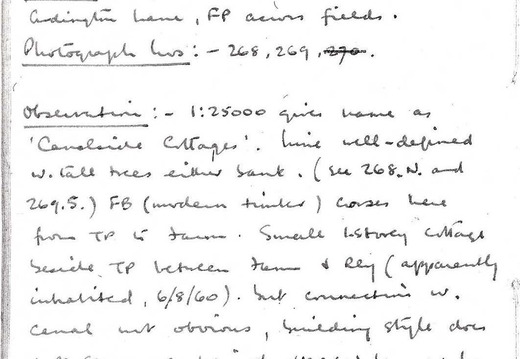 Ardington Lane, FP across fields.
Photograph Nos :- 268, 269, 270.
Observation :- 1:25000 gives name as
'Canalside Cottages'. Line well-defined
w. tall trees either bank. (see 268.N. and
269.S.) FB (modern timber) crosses here
from TP to Farm. Small 1-storey cottage
beside TP between Farm & Rly (apparently
inhabited, 6/8/60). but connection w.
canal not obvious, building style does